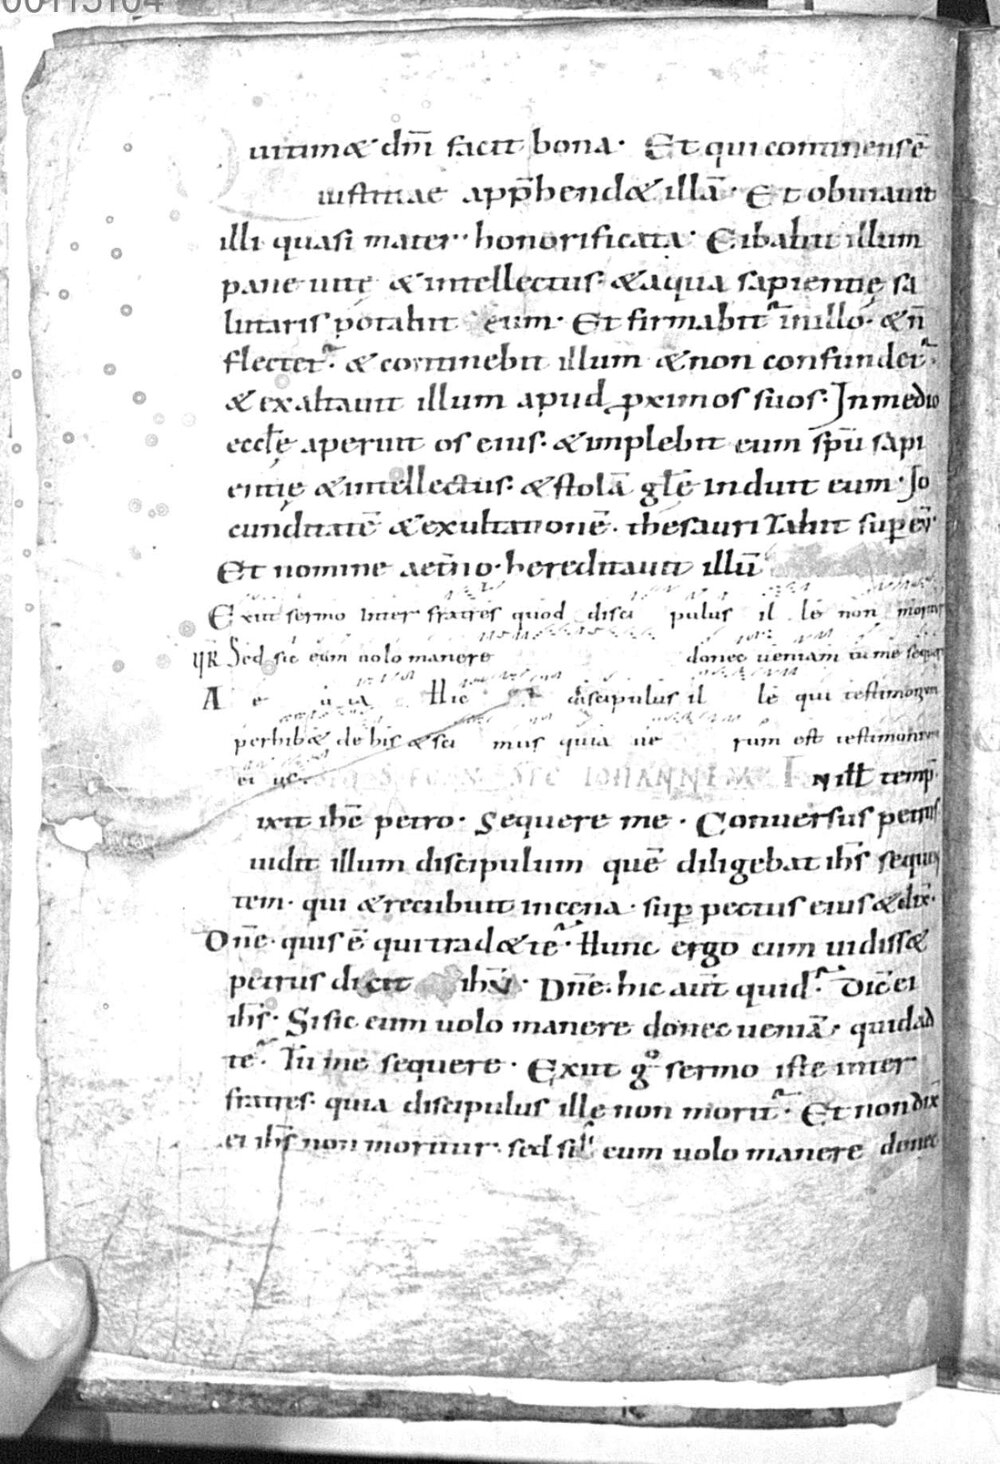 00115104
uitim& dm̄ facit bona· Et qui continens ē
iustitiae app̄hend& illā· Et obuiauit
illi quasi mater·· honorificata· Cibabit illum
pane uitę & intellectus· & aqua sapientię sa
lutaris potabit eum· Et firmabit᷑ in illo· & n̄
flectet᷑· & continebit illum & non confundet᷑·
& exaltauit illum apud ꝓximos suos· In medio
eccl̄ę aperuit os eius· & implebit eum sp̄u sapi
entię & intellectus· & stolā gl̄e induit eum· Io
cunditatē & exultationē· thesaurizabit sup eū·
Et nomine aet̄no· hereditauit illū
Exiit sermo inter fratres quod disci pulus il le non moritur
Sed sic eum uolo manere donec ueniam tu me sequere
A e u ia Hic est discipulus il le qui testimonium
perhib& de his & sci mus quia ue rum est testimonium
ei us· IOHANNEM In ill̄ temp̄·
ixit ih̄c petro· Sequere me· Conuersus petrus
uidit illum discipulum quē diligebat ih̄s sequen
tem· qui & recubuit in cęna· sup pectus eius & dix̄·
Dn̄e· quis ē qui trad& te᷑· Hunc ergo cum uidiss&
petrus dicit ih̄u· Dn̄e· hic aut̄ quid᷑· Dic̄ ei
ih̄s· Si sic eum uolo manere donec ueniā· quid ad
te᷑· Tu me sequere· Exiit gͦ sermo iste inter
fratres· quia discipulus ille non morit᷑· Et non dix̄
ei ih̄s non moritur· sed sic eum uolo manere donec